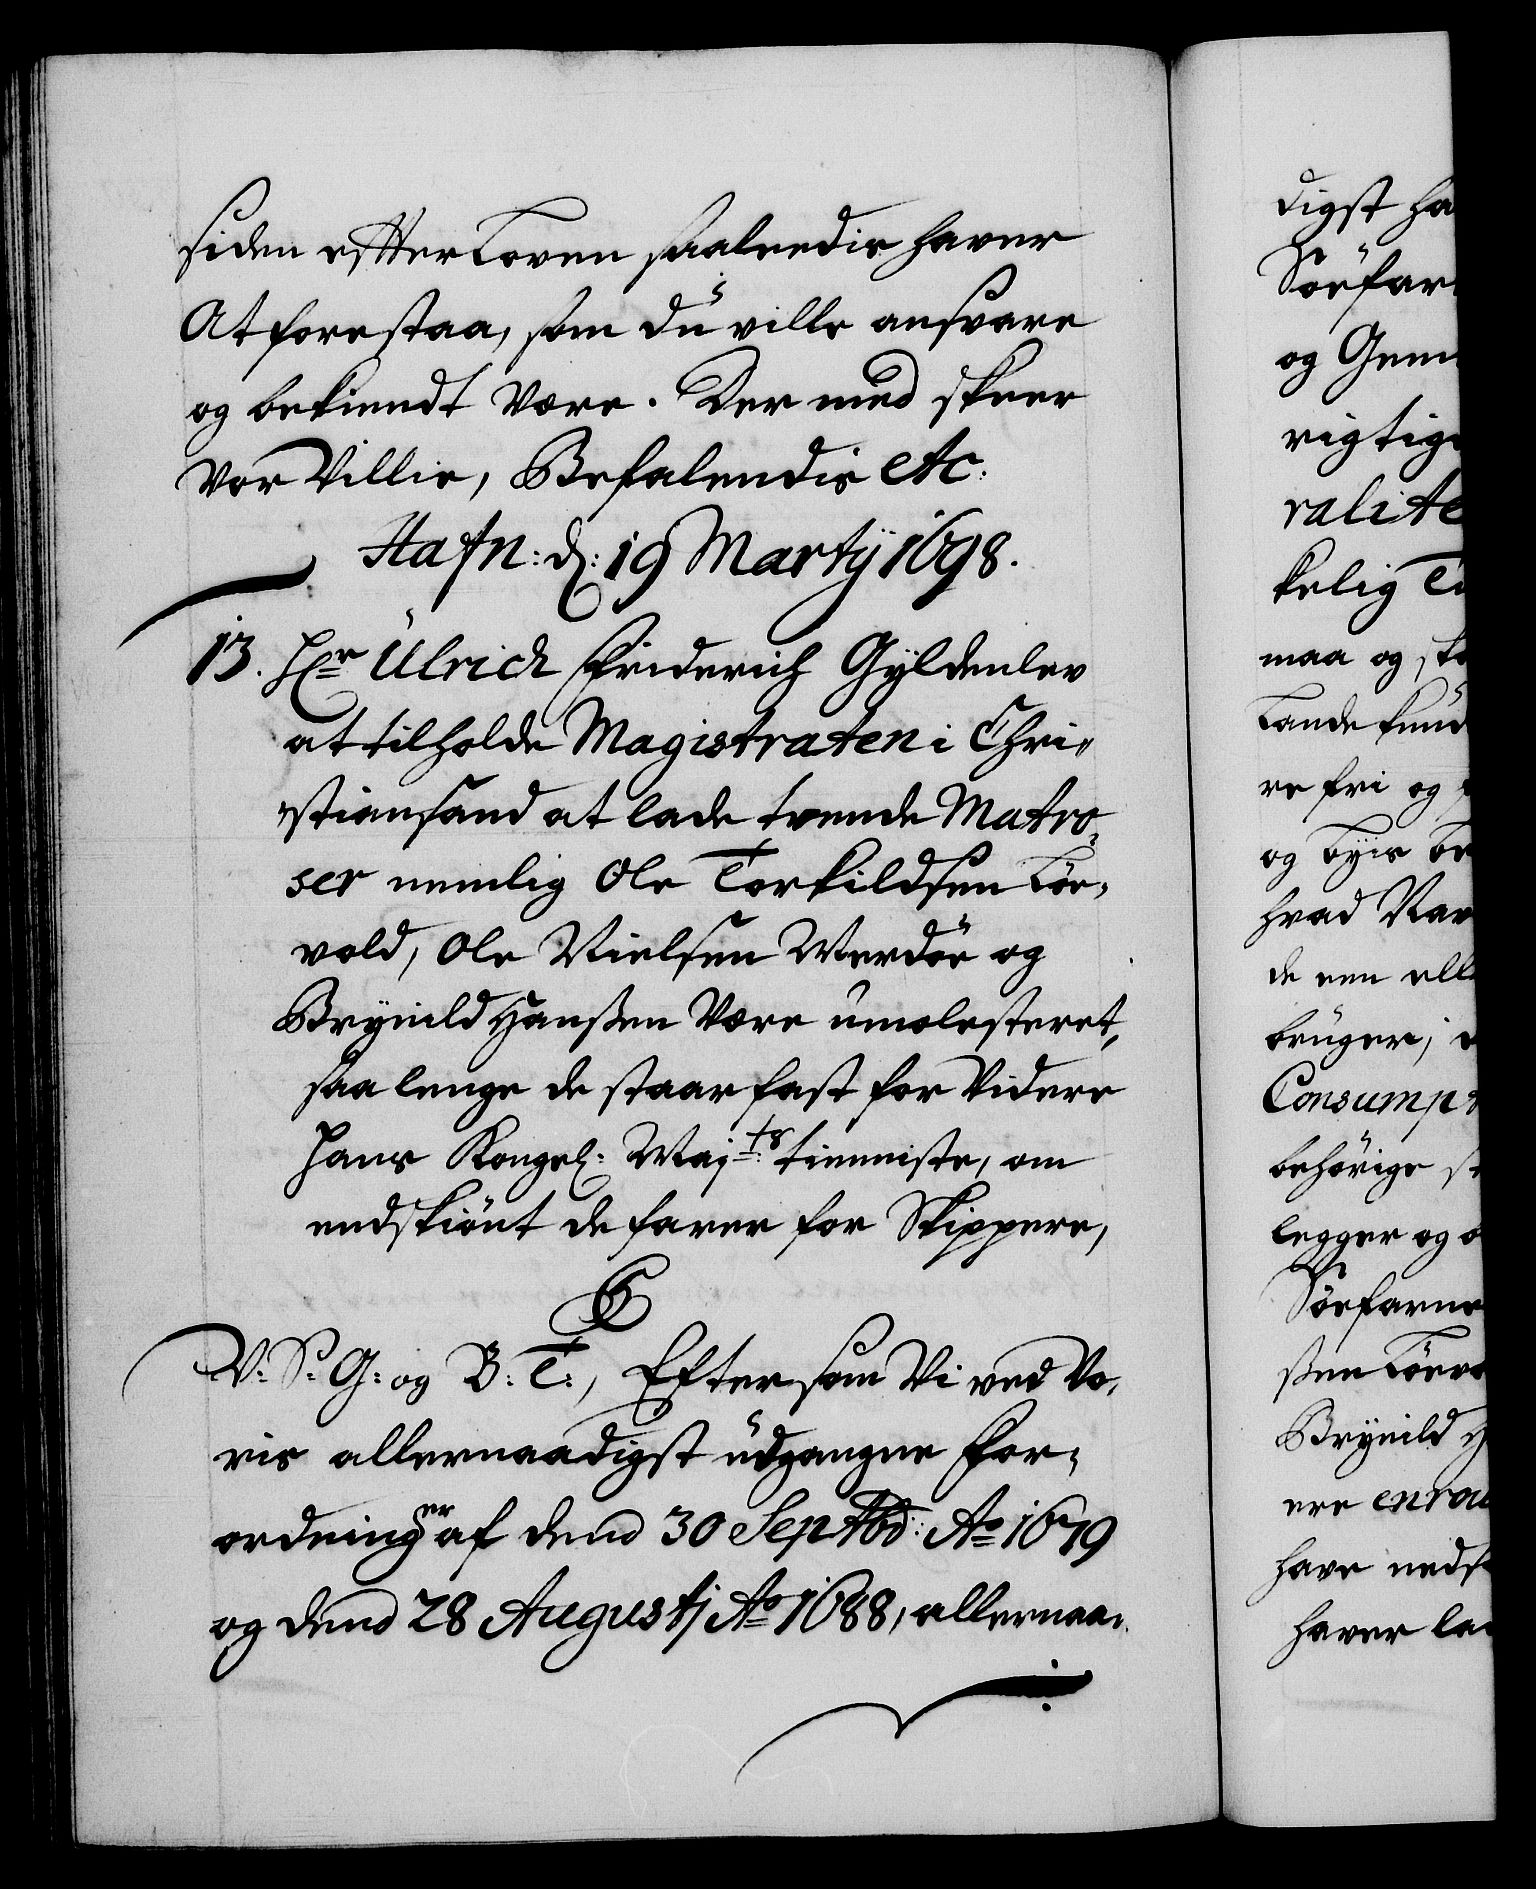 siden effter Loven saaledis haver
At forestaa, som du ville ansvare
og bekiendt være. Der med skeer
Vor Villie, Befalendis etc:
Hafn: d: 19 Martÿ 1698.
13. Hr Ulrich Friderich Gyldenlev
at tilholde Magistraten i Chri„
„stiansand at lade trende Matro„
ser nemlig Ole Torkildsen Löe„
vold, Ole Nielsen Werdöe og
Brÿnild Hanßen være umolesteret,
saa lenge de staar fast for Videre
Hans Kongel: Maj:ts tienniste, om
endskiönt de farer for Skippere,
C5
V: S: G: og B: T:, Eftersom Vi ved Vo„
ris allernaadigst udgangne For„
ordninger af dend 30 Septbr: Ao 1679
og dend 28 Augustj Ao 1688, allernaa„
digst ha
Söefar
og Gem
rigtig
ralite
kelig Ti
maa og sk
Lande
re fri og
og Byis Be
hvad Nav
de een ell
bruger,
Consump
behörige st
legger og o
Söefarne
ßen Löev
Brÿnild H
ere enrou
have neds
haver la